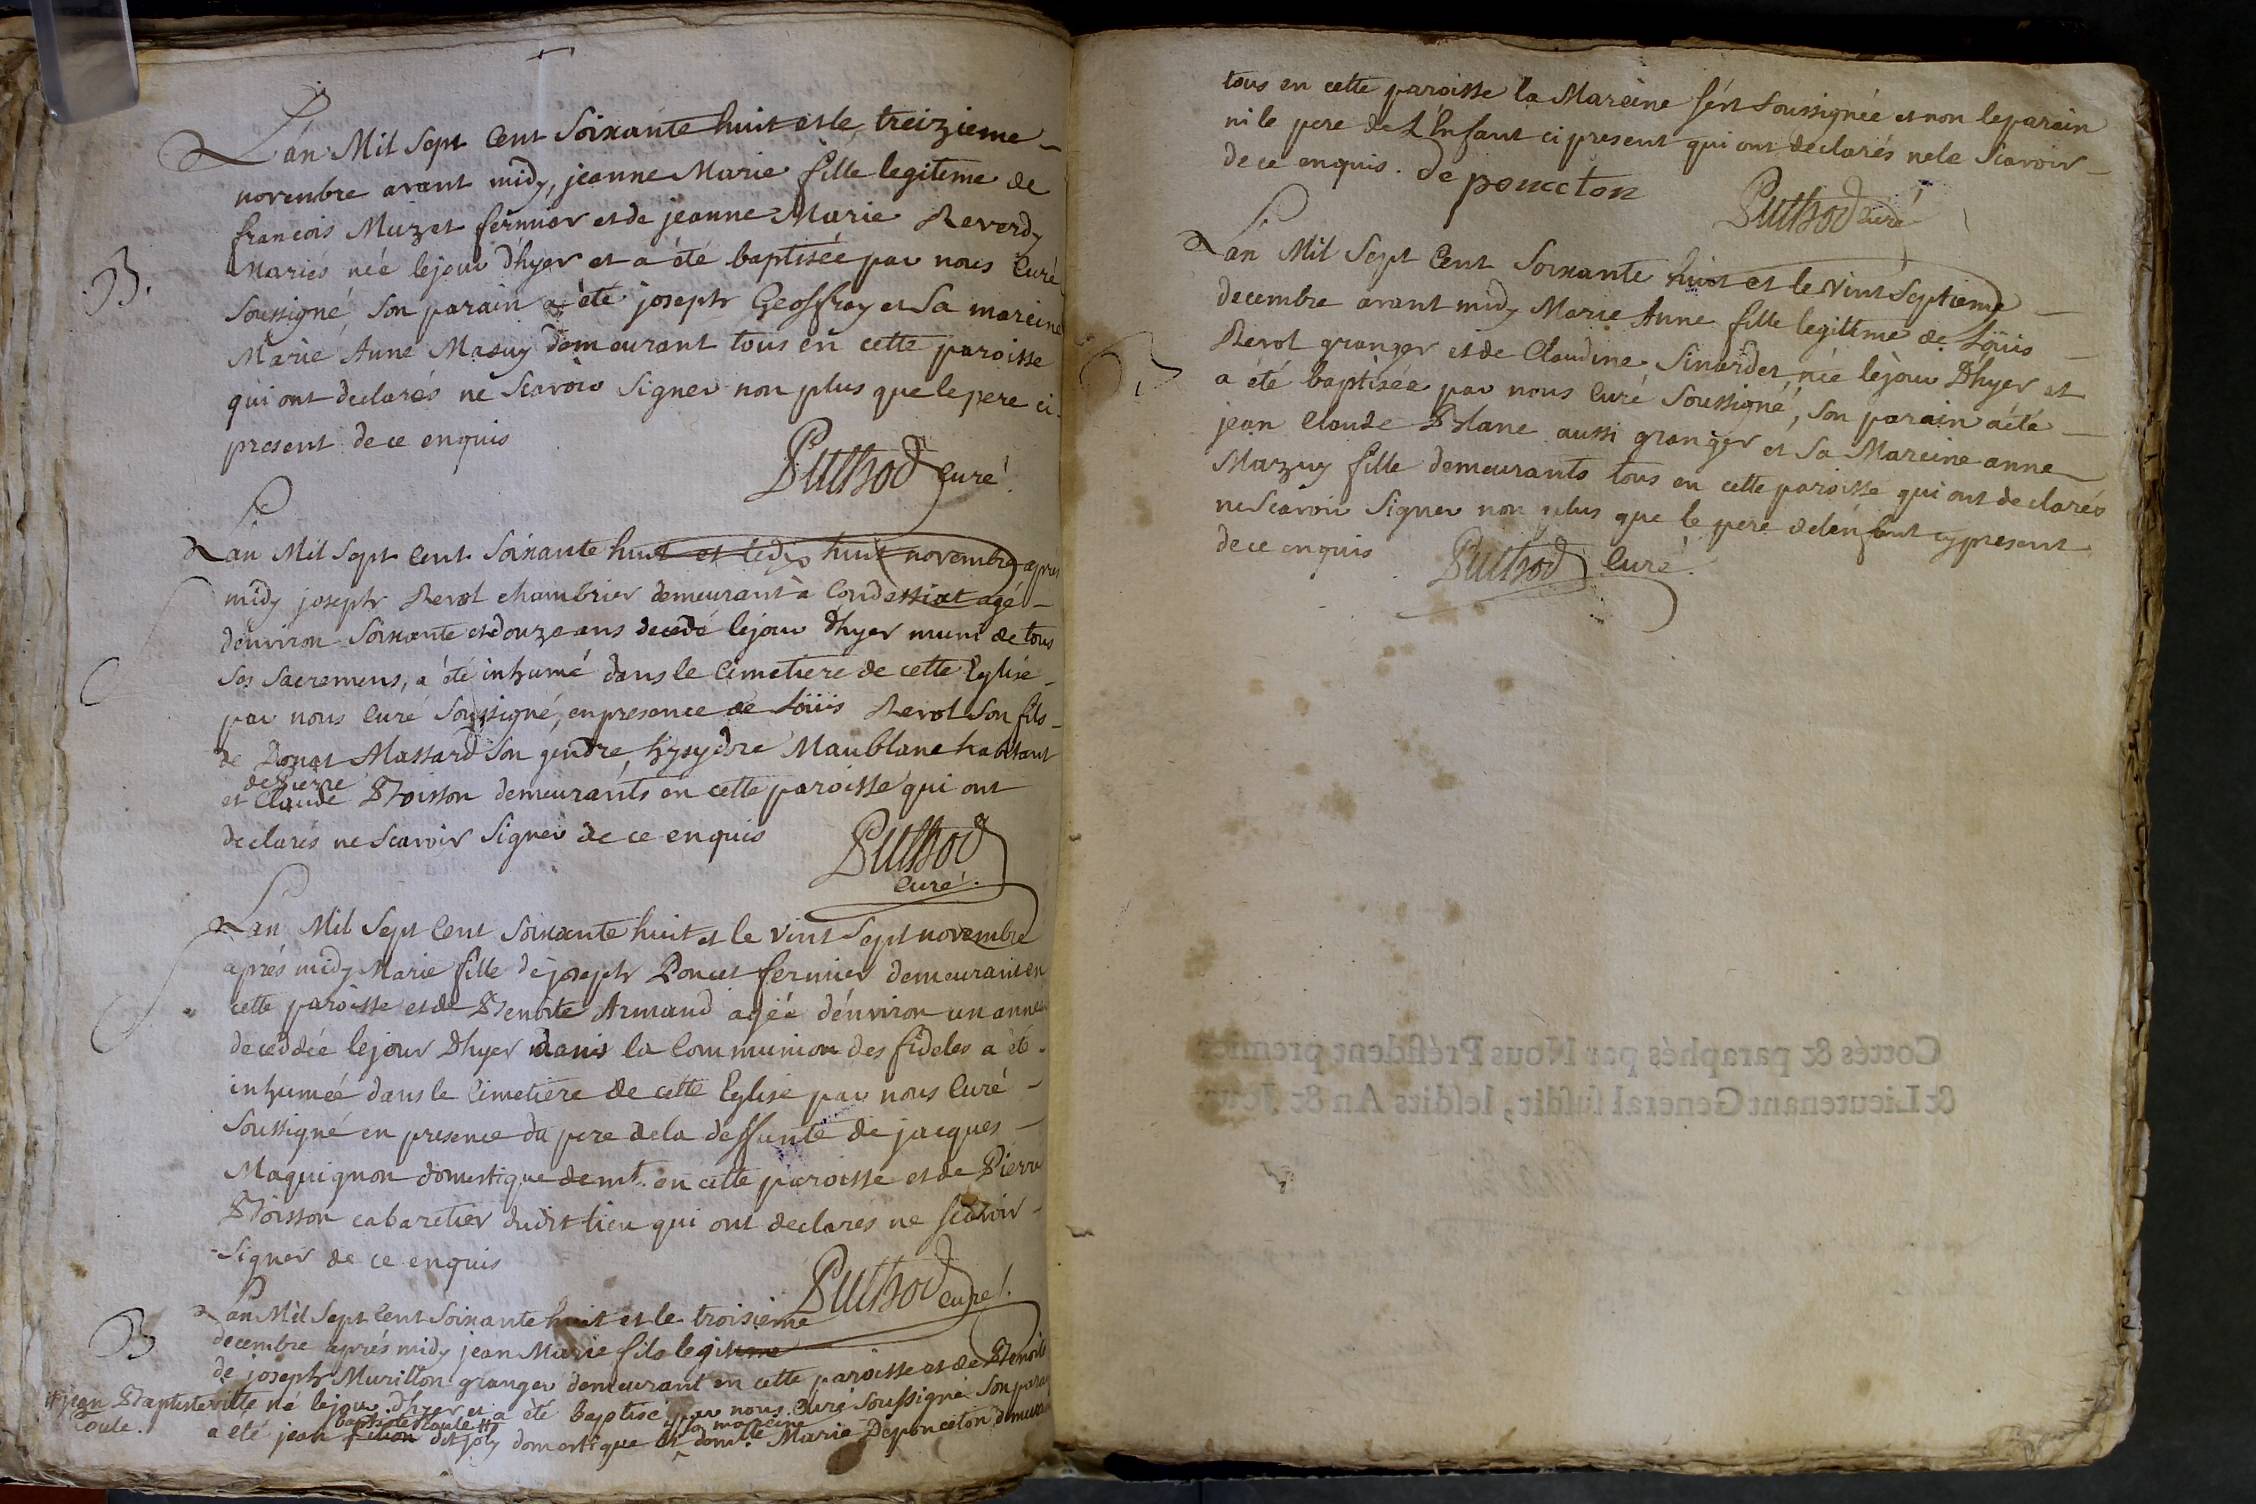 L'an Mil Sept Cent Soixante huit et le treizieme
novembre avant midy, jeanne Marie fille legitime de
francois Muzet fermier et de jeanne Marie Reverdy
Mariés née le jour d'hyer et a été baptisée par nous Curé
B.
soussigné son parain a été joseph Geoffray et sa mareine
Marie Anne Mazuy demeurant tous en cette paroisse
qui ont declarés ne scavoir signer non plus que le pere ci
present de ce enquis
Puthod Curé
L'an Mil Sept Cent Soixante huit et le dix huit novembre apres
midy joseph Revol chambrier demeurant à Condessiat agé
d'environ soixante et douze ans decedé le jour d'hyer muni de tous
ses sacremens, a été inhumé dans le Cimetiere de cette Eglise
par nous Curé soussigné, en presence de Loüis Revol son fils
de Donat Massard son gendre, hysydore Maublanc habitant
de pierre
et Claude Boisson demeurants en cette paroisse qui ont
declarés ne scavoir signer de ce enquis
Puthod
Curé
L'an Mil Sept Cent Soixante huit et le vint sept novembre
aprés midy Marie fille de joseph Poncet fermier demeurant en
cette paroisse et de Benoite Armand agée d'environ un année
deceddée le jour d'hyer dans la Communion des fideles a été
inhumée dans le Cimetiere de cette Eglise par nous Curé
soussigné en presence du pere de la deffunte de jacques
Maquignon domestique demt. en cette paroisse et de Pierre
Boisson cabaretier dudit lieu qui ont declares ne scavoir
signer de ce enquis
Puthod curé
L'an Mil Sept Cent Soixante huit et le troisieme
B
decembre aprés midy jean Marie fils legitime
de joseph Murillon granger demeurant en cette paroisse et de Benoite
ville né le jour d'hyer et a été baptisé par nous Curé soussigné son parain
# jean Baptiste
Coule.
baptiste Coule #
sa mareine
a été jean filion dit joly domestique et demlle Marie Deponceton demeurants
tous en cette paroisse la Mareine s'est soussignée et non le parain
ni le pere de L'Enfant ci present qui ont declarés ne le scavoir
de ce enquis. de ponceton
Puthod curé
L'an Mil Sept Cent Soixante huit et le vint septieme
decembre avant midy Marie Anne fille legitime de Loüis
Revol granger et de Claudine Sinardet née le jour d'hyer et
a été baptisée par nous Curé soussigné, son parain a été
jean Claude Blanc aussi granger et sa Mareine anne
Mazuy fille demeurants tous en cette paroisse qui ont declarés
ne scavoir signer non plus que le pere de l'enfant cy present
de ce enquis
Puthod Curé
Cottés & paraphés par Nous Président premier
& Lieutenant General susdit, lesdits An & Jour